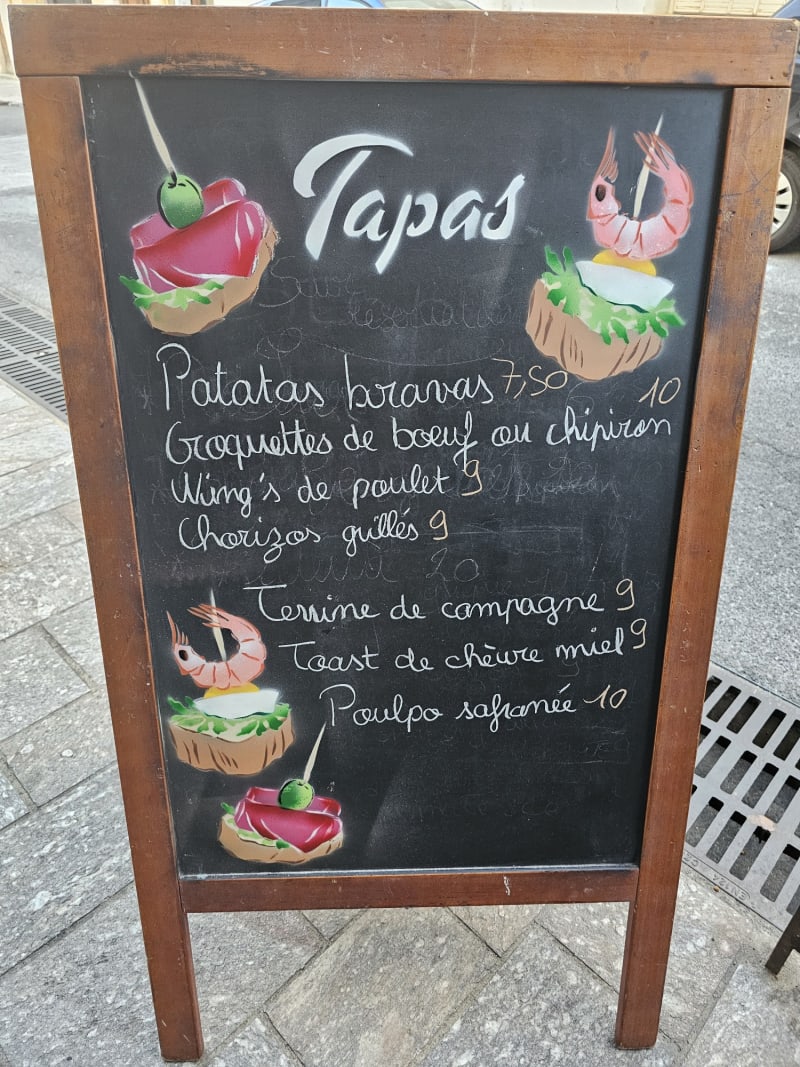 Tapas
Patatas bravas 7,50
Croquettes de boeuf ou chipiron 10
Wing's de poulet 9
Chorizos grillés 9
Terrine de campagne 9
Toast de chèvre miel 9
Poulpo safranée 10